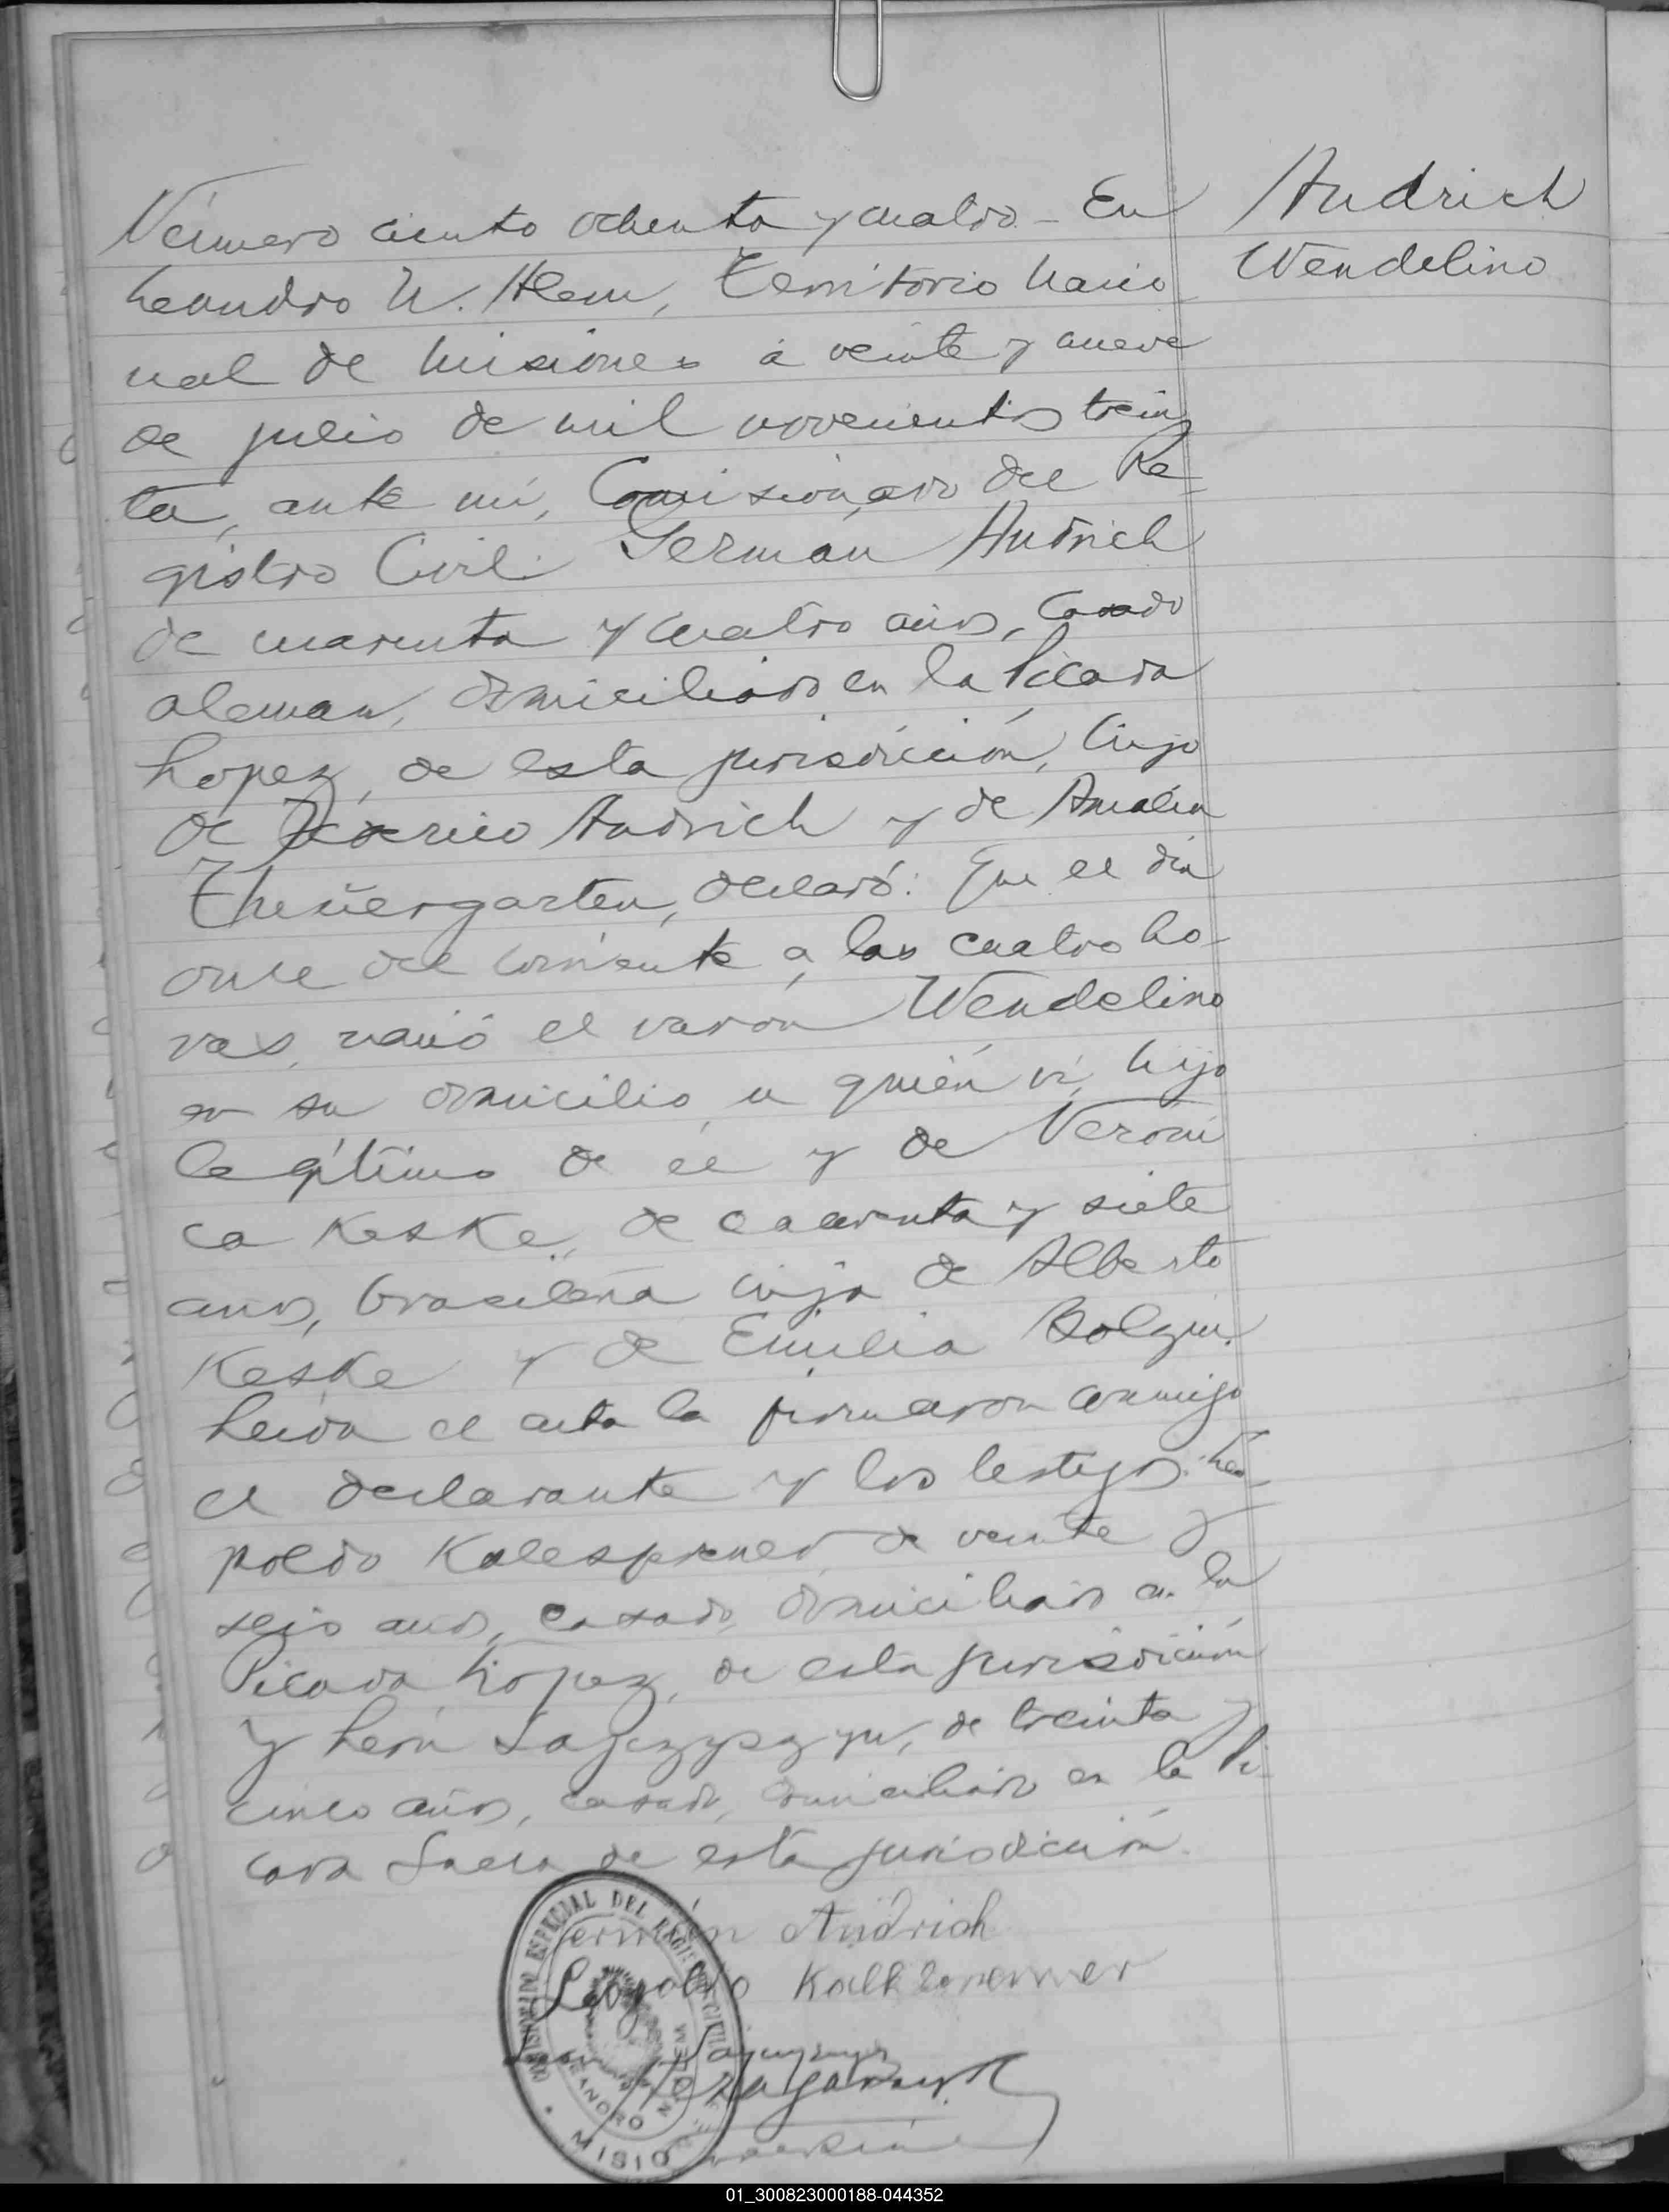 Número ciento ochenta y cuatro - En
Andrich
Wendelino
Leandro N. Alem, Territorio Nacio
nal de Misiones á veinte y nueve
de julio de mil novecientos trein
ta, ante mí, Comisionado del Re-
gistro Civil. Germán Andrich
de cuarenta y cuatro años, casado
aleman, domiciliado en la Picada
Lopez, de esta jurisdicción, hijo
de Federico Andrich y de Amalia
Theüergarten, declaró: Que el día
once del corriente a las cuatro ho-
ras, nació el varón Wendelino
en su domicilio a quién ví, hijo
legítimo de él y de Veroni
ca Keske, de cuarenta y siete
años, brasileña hija de Alberto
Keske y de Emilia
Leída el acta la firmaron conmigo
el declarante y los testigos: Leo-
poldo de veinte y
seis años, casado, domiciliado en la
Picada Lopez, de esta jurisdicción
y León de treinta y
cinco años, casado, domiciliado en la Pi-
cada de esta jurisdicción.
Germán Andrich
Leopoldo
COMISIONADO ESPECIAL DEL REGISTRO CIVIL
LEANDRO N. ALEM
MISIONES
01_300823000188-044352